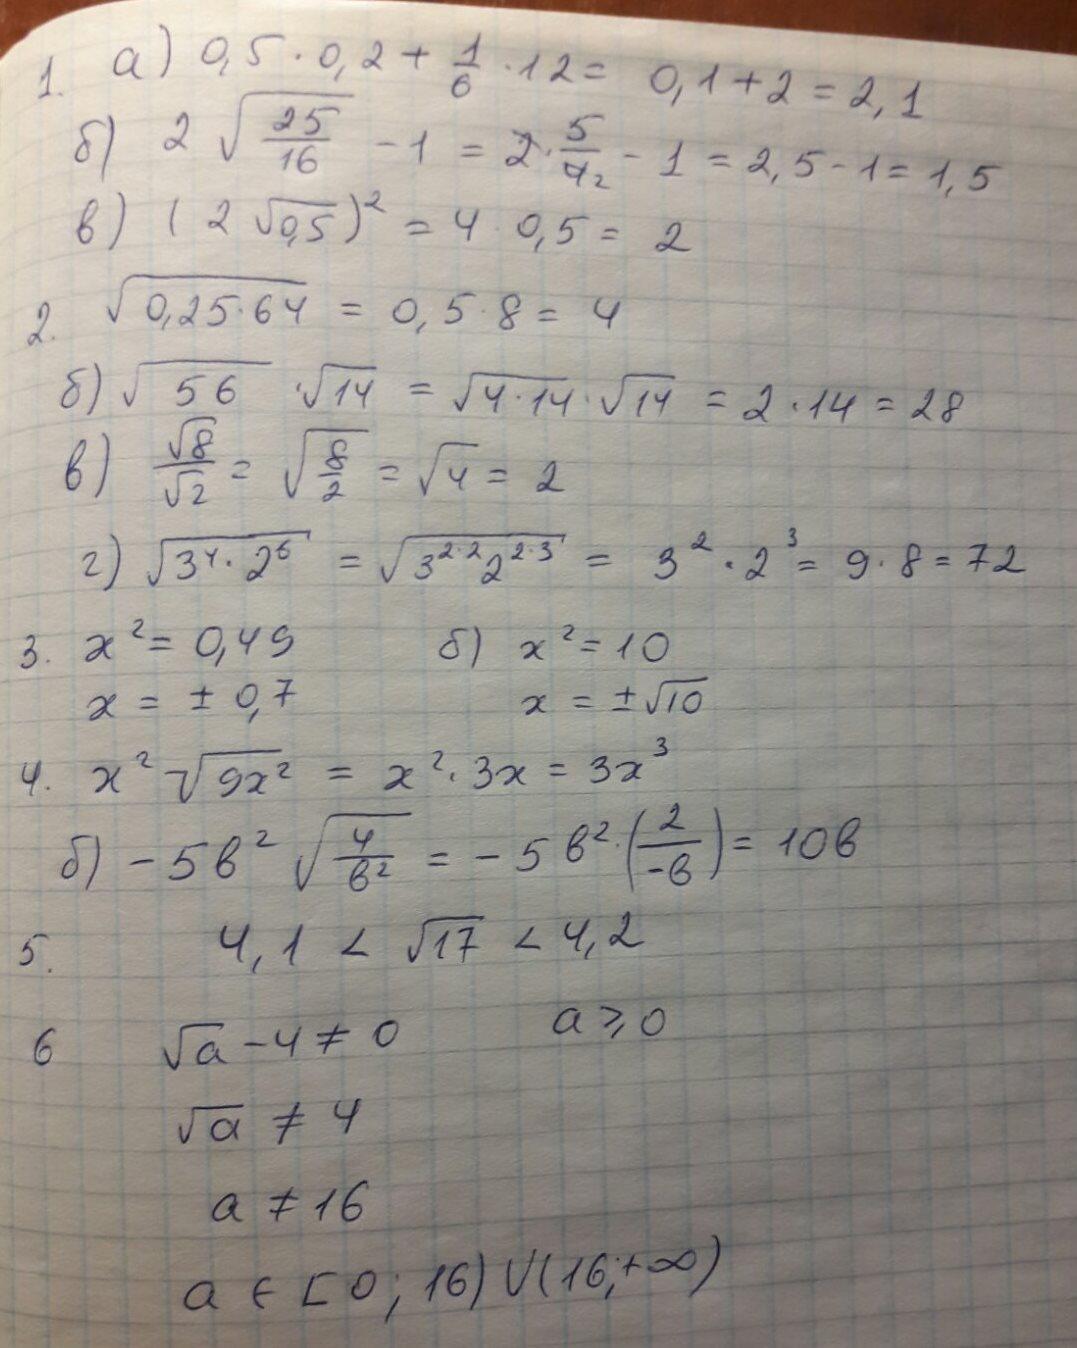 1. а) 0,5 · 0,2 + 1/6 · 12 = 0,1 + 2 = 2,1
б) 2 √(25/16) - 1 = 2 · 5/4₂ - 1 = 2,5 - 1 = 1,5
в) (2 √0,5)² = 4 · 0,5 = 2
2. √(0,25 · 64) = 0,5 · 8 = 4
б) √56 · √14 = √(4 · 14) · √14 = 2 · 14 = 28
в) √8/√2 = √(8/2) = √4 = 2
г) √(3⁴ · 2⁶) = √(3²˙² 2²˙³) = 3² · 2³ = 9 · 8 = 72
3. x² = 0,49 б) x² = 10
x = ± 0,7 x = ±√10
4. x² √(9x²) = x² · 3x = 3x³
б) - 5в² √(4/в²) = - 5в² · (2/-в) = 10в
5. 4,1 < √17 < 4,2
6 √a - 4 ≠ 0 a ⩾ 0
√a ≠ 4
a ≠ 16
a ∈ [0; 16) ∪ (16; +∞)